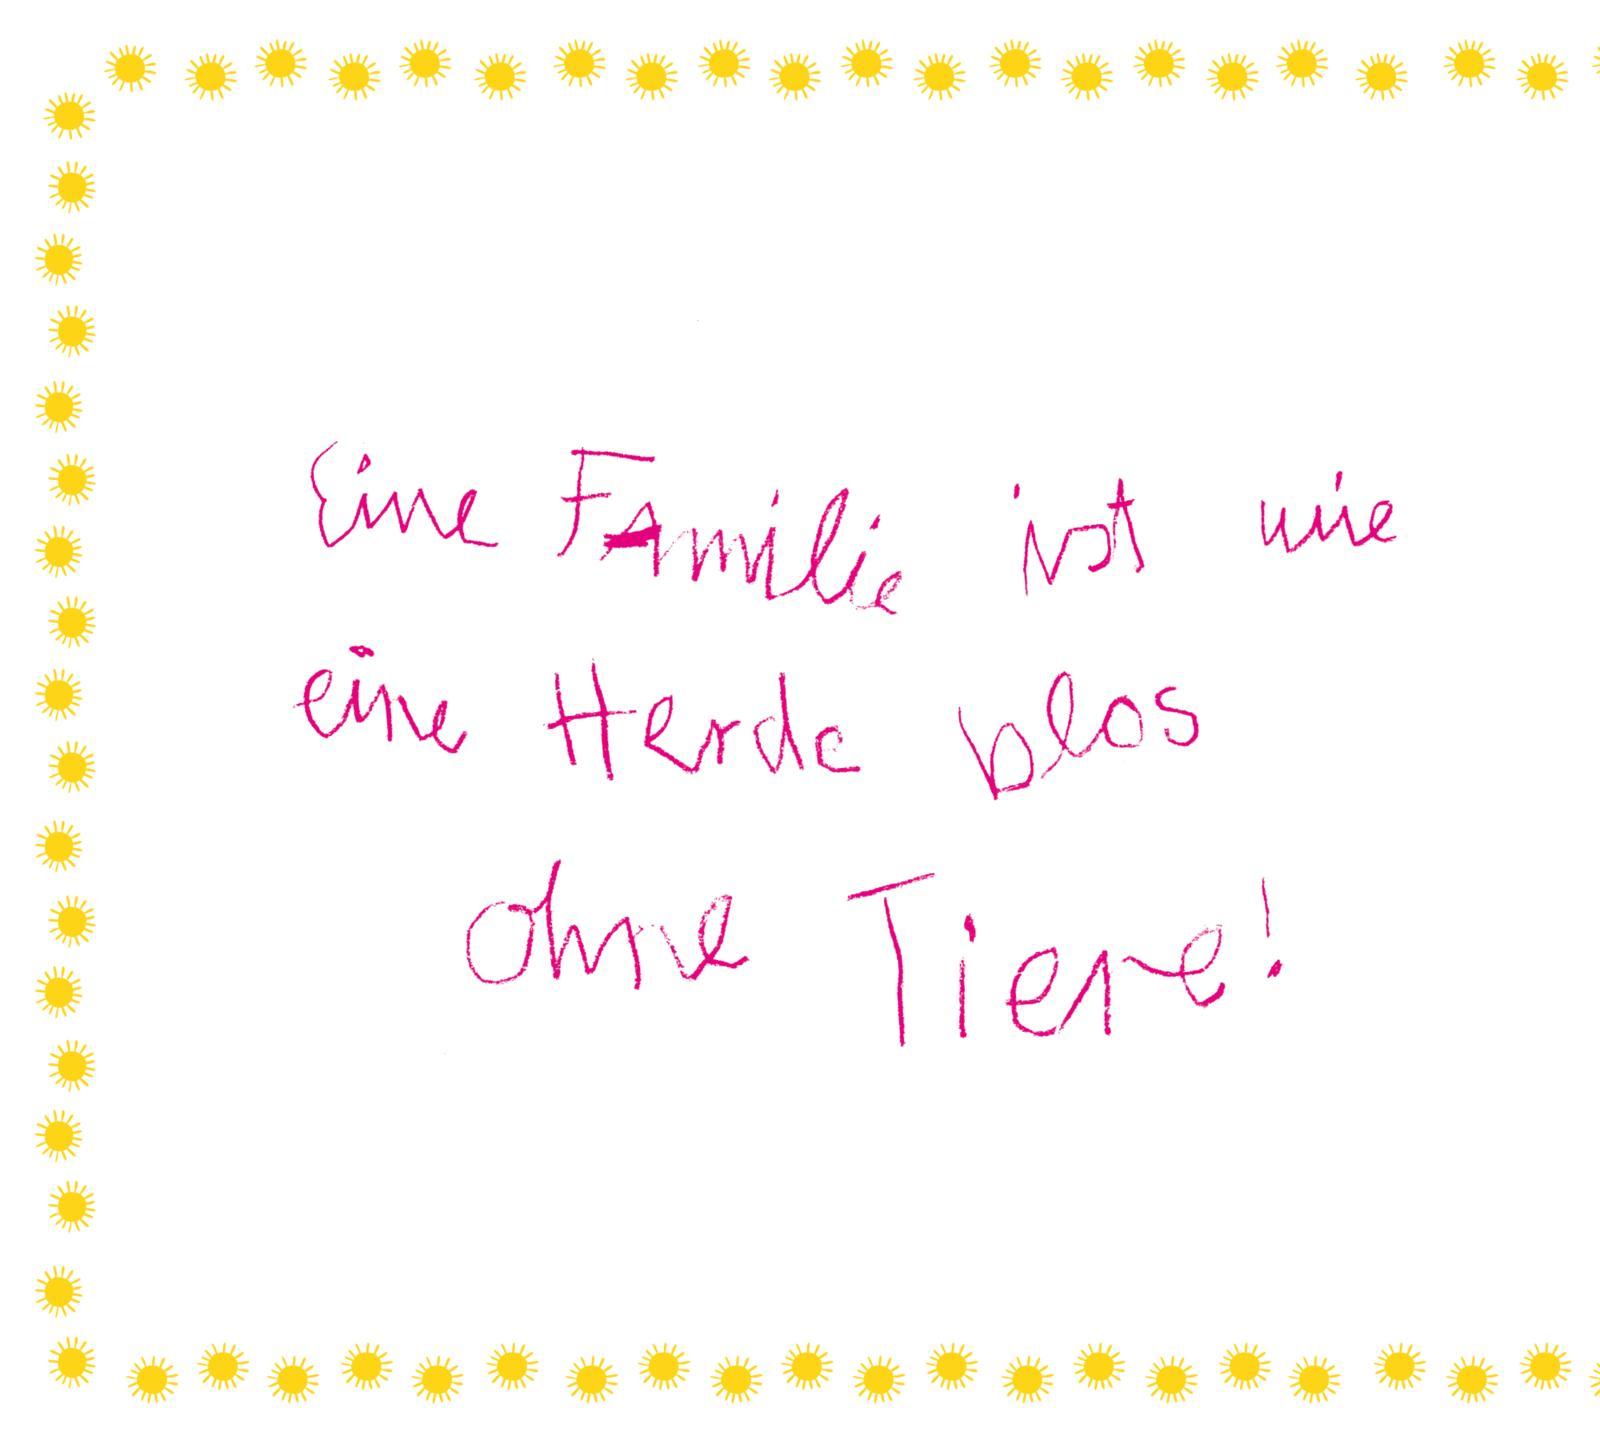 Eine Familie ist wie
eine Herde blos
ohne Tiere!